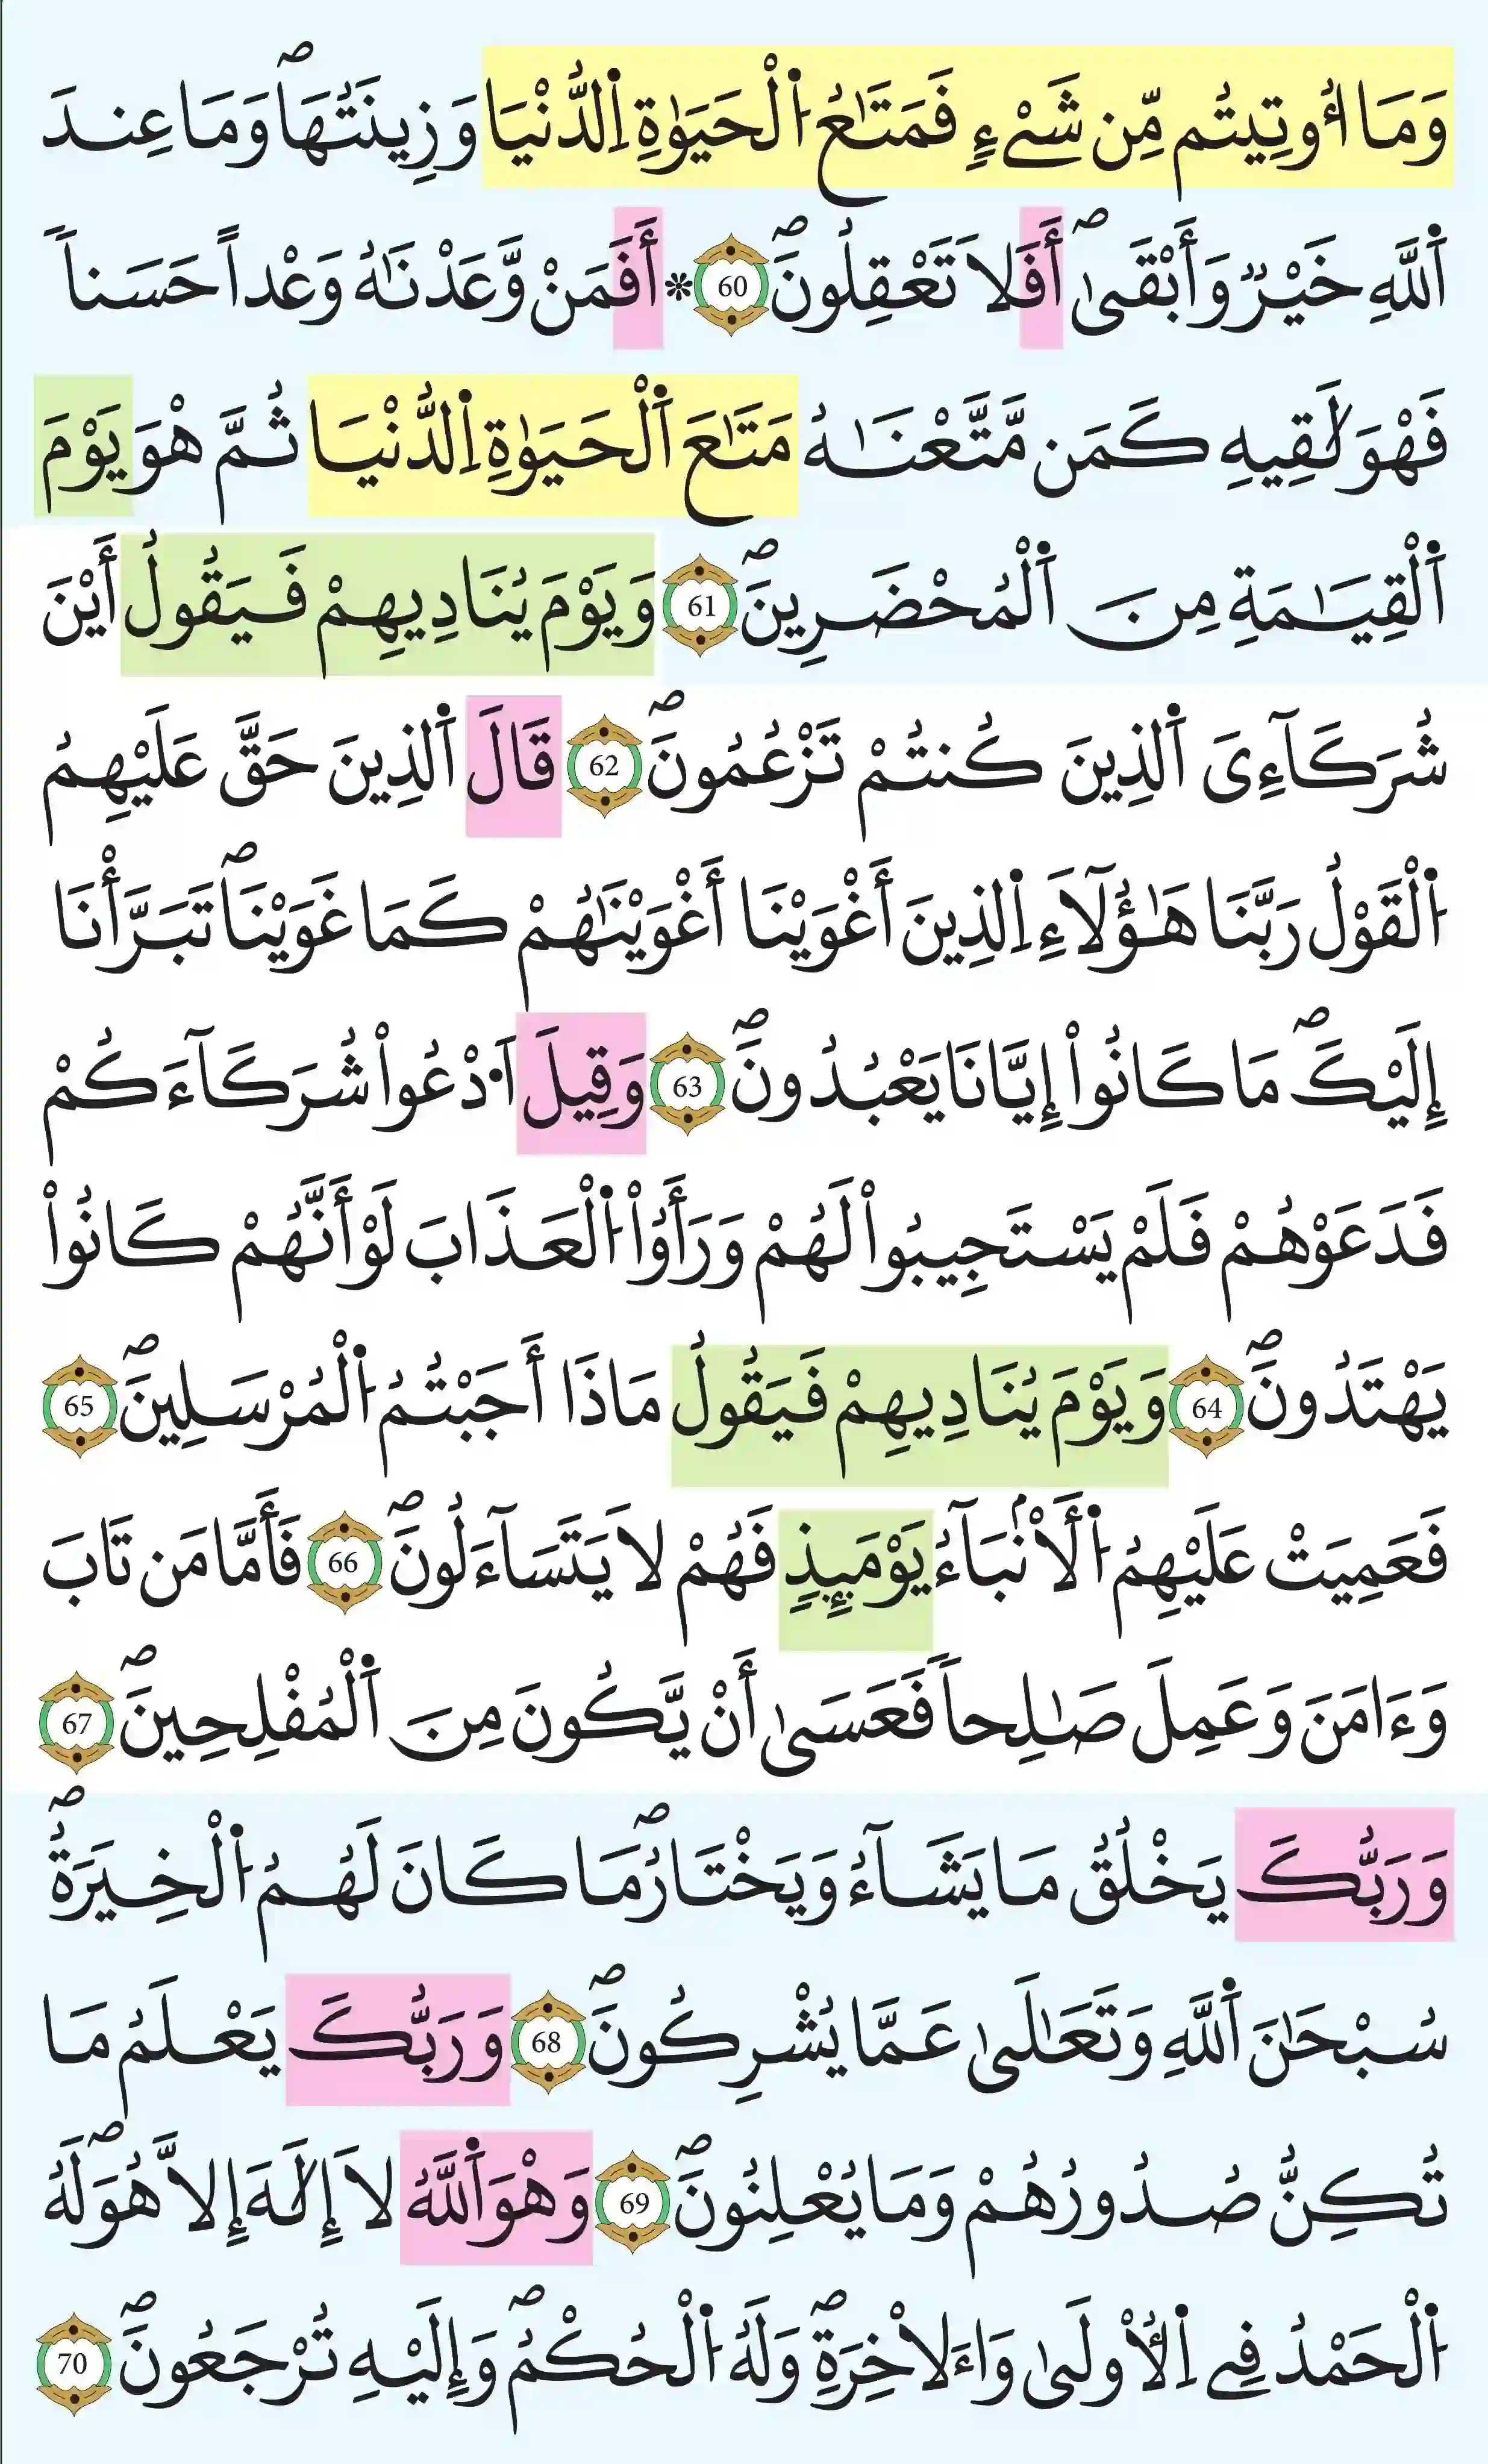 وَمَا أُوتِيتُم مِّن شَےْءٖ فَمَتَٰعُ اُ۬لْحَيَوٰةِ اِ۬لدُّنْيَا وَزِينَتُهَاۖ وَمَا عِندَ
اَ۬للَّهِ خَيْرٞ وَأَبْقَىٰۖ أَفَلَا تَعْقِلُونَۖ 60 * أَفَمَنْ وَّعَدْنَٰهُ وَعْداً حَسَناٗ
فَهْوَ لَٰقِيهِ كَمَن مَّتَّعْنَٰهُ مَتَٰعَ اَ۬لْحَيَوٰةِ اِ۬لدُّنْيَا ثُمَّ هْوَ يَوْمَ
اَ۬لْقِيَٰمَةِ مِنَ اَ۬لْمُحْضَرِينَۖ 61 وَيَوْمَ يُنَادِيهِمْ فَيَقُولُ أَيْنَ
شُرَكَآءِىَ اَ۬لذِينَ كُنتُمْ تَزْعُمُونَۖ 62 قَالَ اَ۬لذِينَ حَقَّ عَلَيْهِمُ
اُ۬لْقَوْلُ رَبَّنَا هَٰٓؤُلَآءِ اِ۬لذِينَ أَغْوَيْنَا أَغْوَيْنَٰهُمْ كَمَا غَوَيْنَاۖ تَبَرَّأْنَا
إِلَيْكَۖ مَا كَانُواْ إِيَّانَا يَعْبُدُونَۖ 63 وَقِيلَ اَ۟دْعُواْ شُرَكَآءَكُمْ
فَدَعَوْهُمْ فَلَمْ يَسْتَجِيبُواْ لَهُمْ وَرَأَوُاْ اُ۬لْعَذَابَ لَوْ أَنَّهُمْ كَانُواْ
يَهْتَدُونَۖ 64 وَيَوْمَ يُنَادِيهِمْ فَيَقُولُ مَاذَا أَجَبْتُمُ اُ۬لْمُرْسَلِينَۖ 65
فَعَمِيَتْ عَلَيْهِمُ اُ۬لَأنۢبَآءُ يَوْمَئِذٖ فَهُمْ لَا يَتَسَآءَلُونَۖ 66 فَأَمَّا مَن تَابَ
وَءَامَنَ وَعَمِلَ صَٰلِحاٗ فَعَسَىٰ أَنْ يَّكُونَ مِنَ اَ۬لْمُفْلِحِينَۖ 67
وَرَبُّكَ يَخْلُقُ مَا يَشَآءُ وَيَخْتَارُۖ مَا كَانَ لَهُمُ اُ۬لْخِيَرَةُۖ
سُبْحَٰنَ اَ۬للَّهِ وَتَعَٰلَىٰ عَمَّا يُشْرِكُونَۖ 68 وَرَبُّكَ يَعْلَمُ مَا
تُكِنُّ صُدُورُهُمْ وَمَا يُعْلِنُونَۖ 69 وَهْوَ اَ۬للَّهُ لَا إِلَٰهَ إِلَّا هُوَۖ لَهُ
اُ۬لْحَمْدُ فِے اِ۬لُاولَىٰ وَاءَلَاخِرَةِۖ وَلَهُ اُ۬لْحُكْمُۖ وَإِلَيْهِ تُرْجَعُونَۖ 70